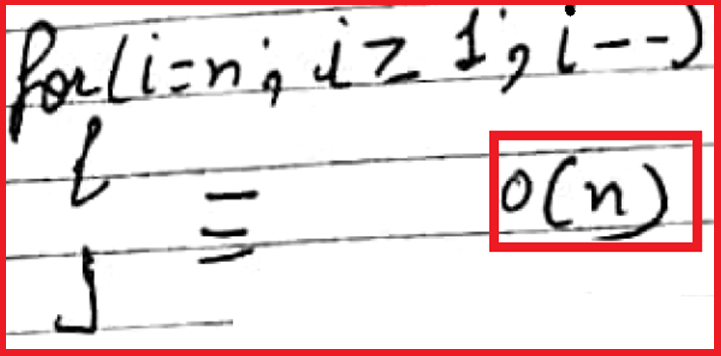 for(i=n; i≥1; i--)
{
≡ O(n)
}